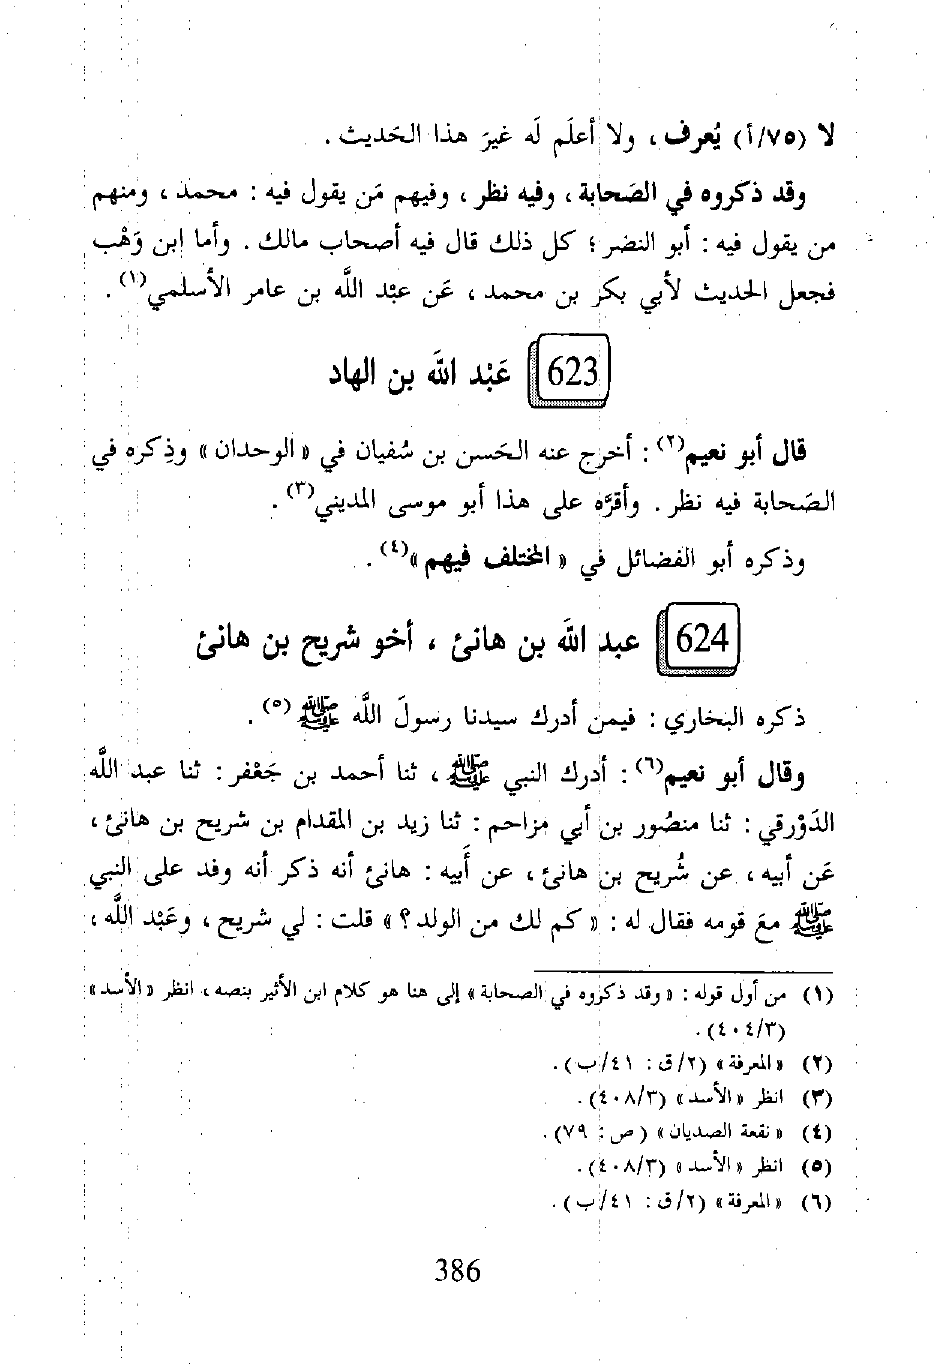 لا (٧٥/أ) يُعرف ، ولا أعلَم لَه غيرَ هذا الحَديث .
وقد ذكروه في الصَحابة ، وفيه نظر ، وفيهم مَن يقول فيه : محمد ، ومنهم
من يقول فيه : أبو النضر ؛ كل ذلك قال فيه أصحاب مالك . وأما ابن وَهْب
فجعل الحديث لأبي بكر بن محمد ، عَن عبْد اللَّه بن عامر الأسلمي(١) .
623 عَبْد اللَّه بن الهاد
قال أبو نعيم(٢) : أخرج عنه الحَسن بن سُفيان في « الوحدان » وذِكره في
الصَحابة فيه نظر . وأقرَّه على هذا أبو موسى المديني(٣) .
وذكره أبو الفضائل في « المختلف فيهم »(٤) .
624 عبد اللَّه بن هانئ ، أخو شريح بن هانئ
ذكره البخاري : فيمن أدرك سيدنا رسولَ اللَّه ﷺ (٥) .
وقال أبو نعيم(٦) : أدرك النبي ﷺ ، ثنا أحمد بن جَعْفر : ثنا عبد اللَّه
الدَوْرقي : ثنا منصُور بن أبي مزاحم : ثنا زيد بن المقدام بن شريح بن هانئ ،
عَن أبيه ، عن شُريح بن هانئ ، عن أَبيه : هانئ أنه ذكر أنه وفد على النبي
ﷺ معَ قومه فقال له : « كم لك من الولد ؟ » قلت : لي شريح ، وعَبْد اللَّه ،
(١) من أول قوله : « وقد ذكروه في الصحابة » إلى هنا هو كلام ابن الأثير بنصه ، انظر « الأسد »
(٤٠٤/٣) .
(٢) « المعرفة » (٢/ق : ٤١/ب) .
(٣) انظر « الأسد » (٤٠٨/٣) .
(٤) « نقعة الصديان » (ص : ٧٩) .
(٥) انظر « الأسد » (٤٠٨/٣) .
(٦) « المعرفة » (٢/ق : ٤١/ب) .
386